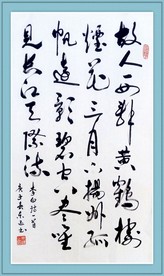 故人西辭黃鶴樓
煙花三月下揚州孤
帆遠影碧空盡唯
見長江天際流
李白詩一首